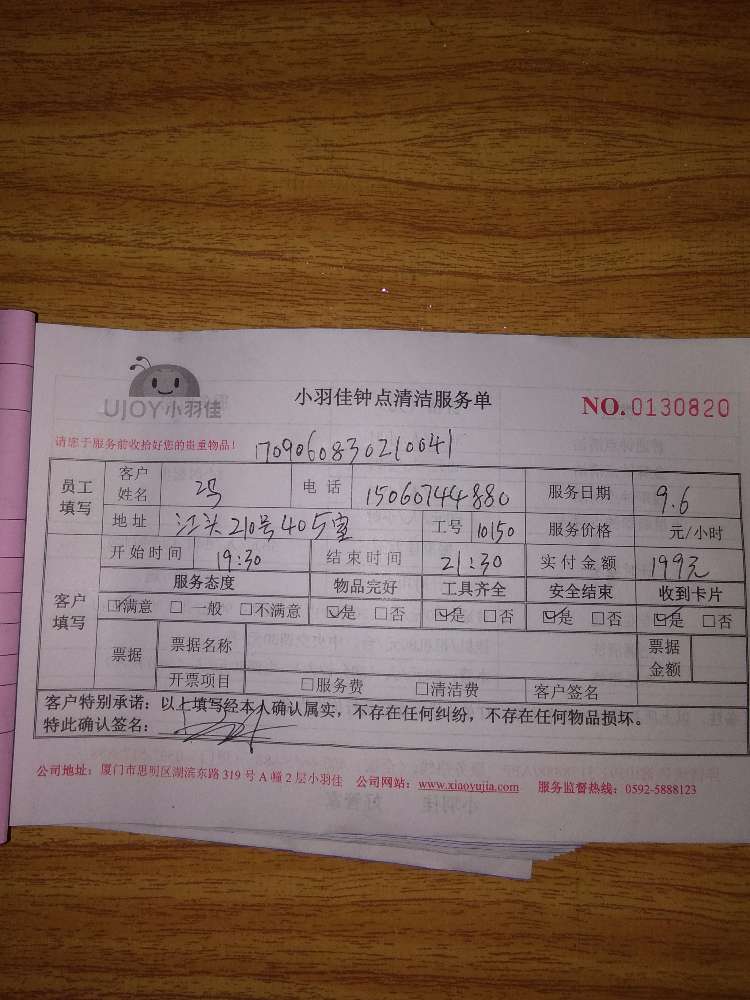 UJOY小羽佳
小羽佳钟点清洁服务单
NO.0130820
请您于服务前收拾好您的贵重物品!
1709060830210041
员工填写 客户姓名 冯 电话 15060744880 服务日期 9.6
地址 江头210号405室 工号 10150 服务价格 元/小时
客户填写 开始时间 19:30 结束时间 21:30 实付金额 199元
服务态度 物品完好 工具齐全 安全结束 收到卡片
☑满意 □一般 □不满意 ☑是 □否 ☑是 □否 ☑是 □否 ☑是 □否
票据 票据名称 票据金额
开票项目 □服务费 □清洁费 客户签名
客户特别承诺:以上填写经本人确认属实,不存在任何纠纷,不存在任何物品损坏。
特此确认签名:
公司地址:厦门市思明区湖滨东路 319 号 A 幢 2 层小羽佳 公司网站:www.xiaoyujia.com 服务监督热线:0592-5888123